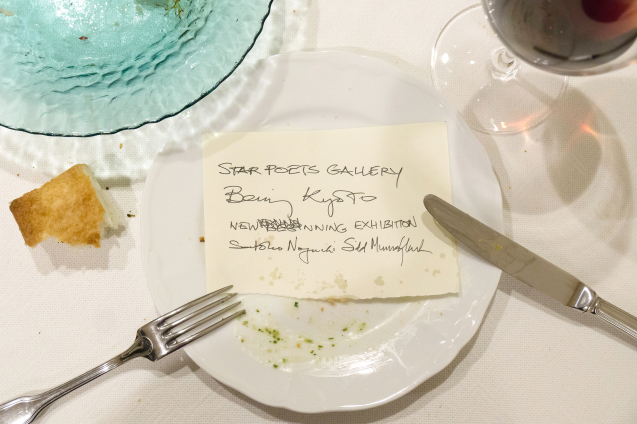 STAR POETS GALLERY
Being Kyoto
NEW BEGINNING EXHIBITION
Noguchi Sidd